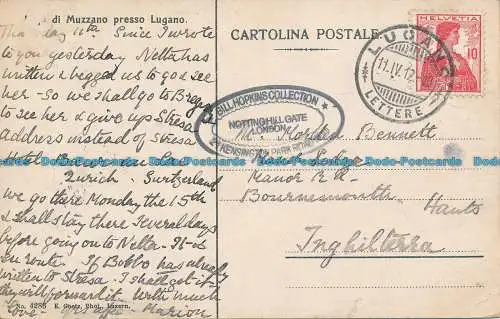 di Muzzano presso Lugano.
CARTOLINA POSTALE
Thursday 11th. Since I wrote
to you yesterday Netta has
written & begged us to go & see
her - So we shall go to
to see her & give up Stresa
address instead of Stresa
Hotel
Zurich. Switzerland
We go there Monday the 15th
& shall stay there several days
before going on to Netta -
write. If Bobbo has already
written to Stresa. I shall get it
they will forward it. With much
love - Marion
No. 4286 E. Goetz, Phot., Luzern.
BILL HOPKINS COLLECTION
NOTTING HILL GATE
LONDON
KENSINGTON PARK ROAD
LUGANO
11.IV.12
LETTERE
HELVETIA
10
Mrs Morden Bennett
Manor Rd
Bournemouth
Hants
Inghilterra
Do-Postcards Do-Postcards Do-Postcards Do-Postcards